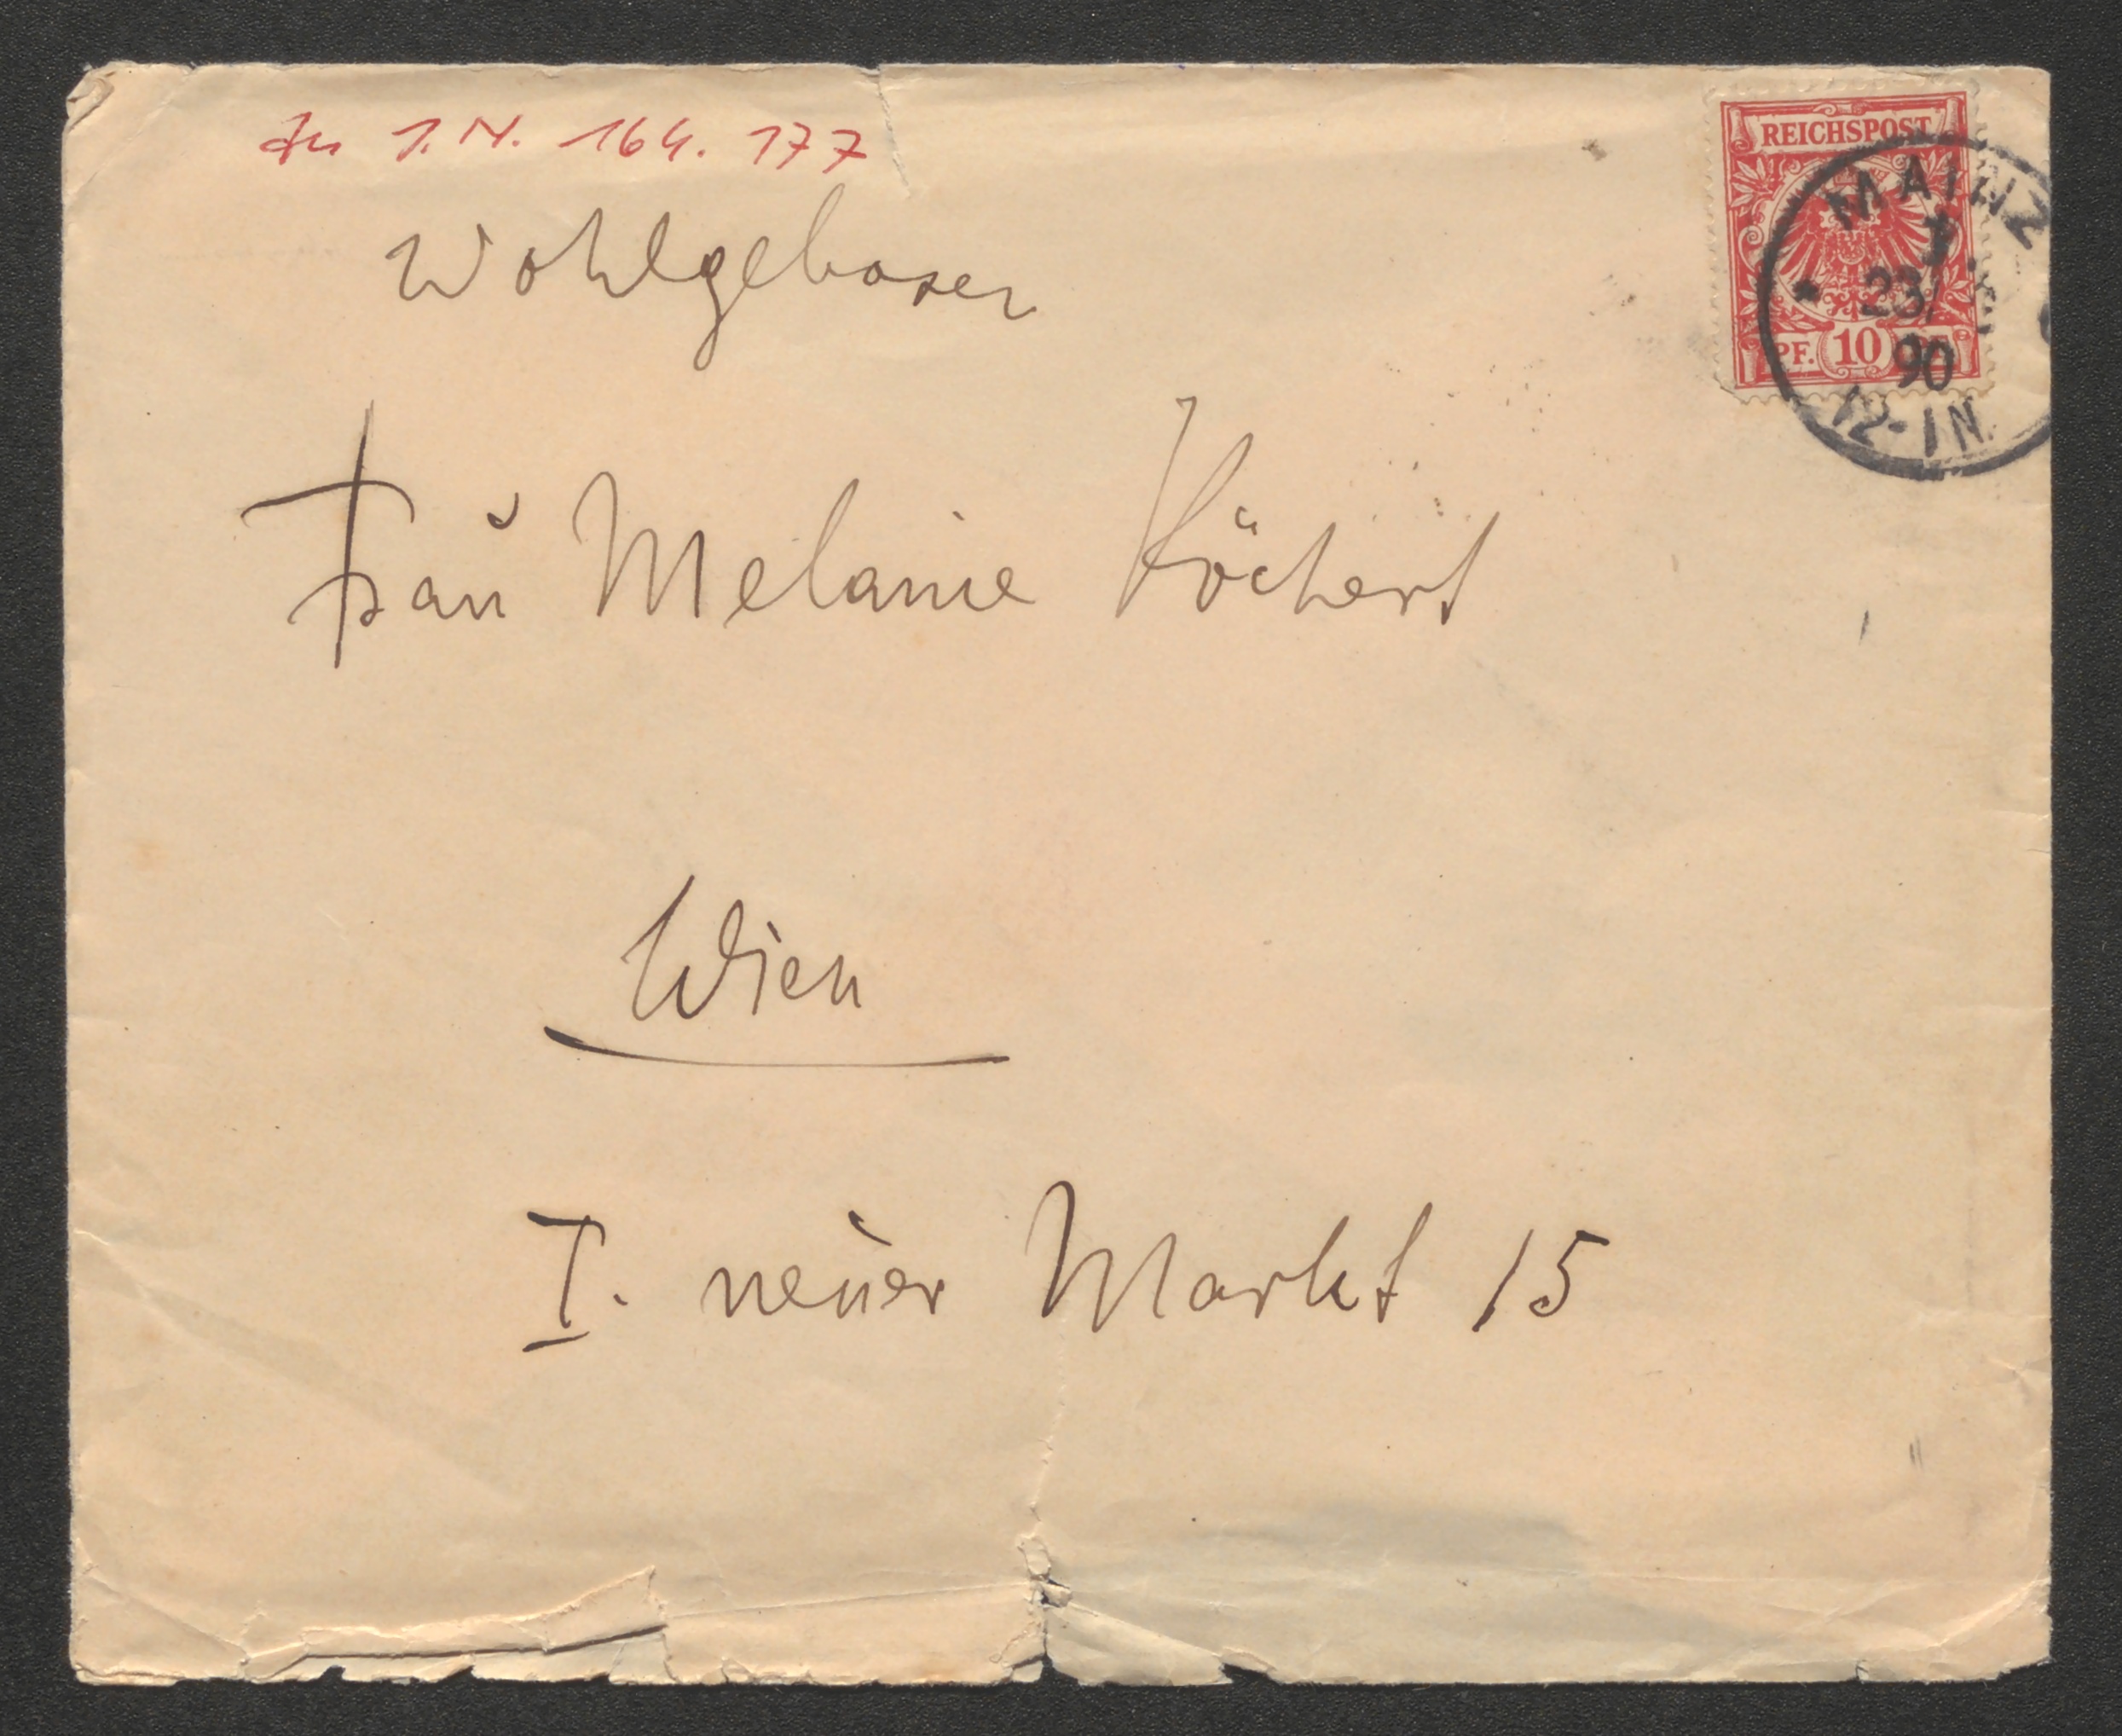 Zu I.N. 164.177
Wohlgeboren
Frau Melanie Köchert
Wien
I. neuer Markt 15
REICHSPOST
PF. 10
MAINZ
1.
23/
90
12-1N.